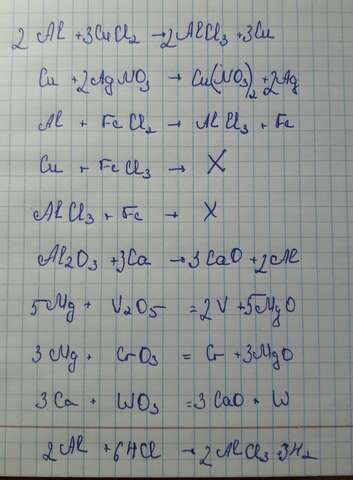 2 Al + 3CuCl₂ → 2AlCl₃ + 3Cu
Cu + 2AgNO₃ → Cu(NO₃)₂ + 2Ag
Al + FeCl₂ → AlCl₃ + Fe
Cu + FeCl₃ → X
AlCl₃ + Fe → X
Al₂O₃ + 3Ca → 3CaO + 2Al
5Mg + V₂O₅ = 2V + 5MgO
3Mg + CrO₃ = Cr + 3MgO
3Ca + WO₃ = 3CaO + W
2Al + 6HCl → 2AlCl₃ + 3H₂